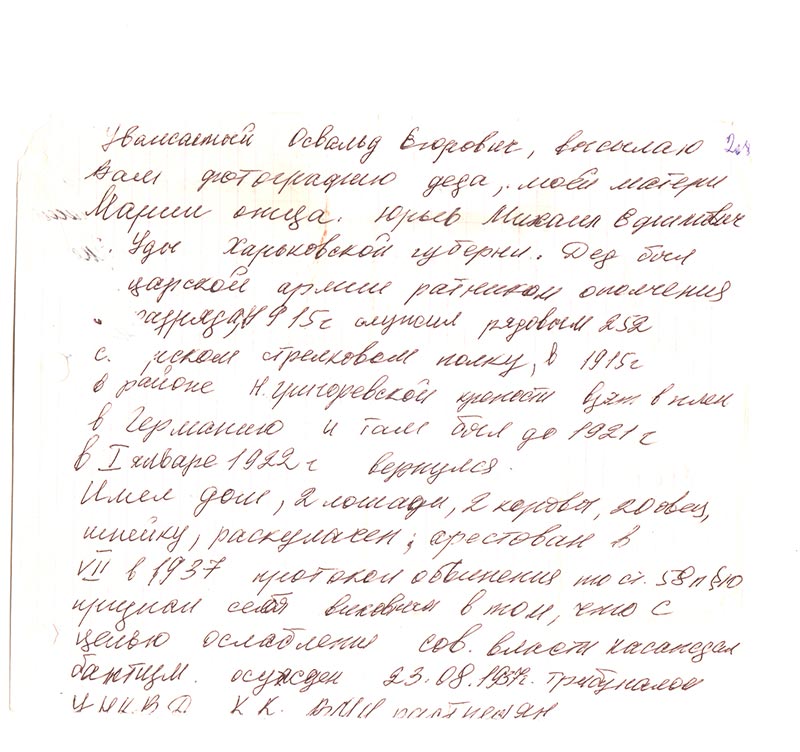 Уважаемый Освальд Егорович, высылаю
Вам фотографию деда, моей матери
Марии отца. Юрьев Михаил Ефимович
Уды Харьковской губерни. Дед был
царской армии ратником ополчения
разряда, 1915г служил рядовым 252
с. рском стрелковом полку, в 1915г
в районе Н. Григоревской крепости взят в плен
в Германию и там был до 1921 г
в I январе 1922 г вернулся.
Имел дом, 2 лошади, 2 коровы, 20 овец,
швейку, раскулачен, арестован в
VII в 1937 протокол обвинения по ст. 58 п §10
признал себя виновным в том, что с
целью ослабления сов. власти насаждал
баптизм. осужден 23.08.1937г. трибуналом
УНКВД К К. ВМН расстрелян